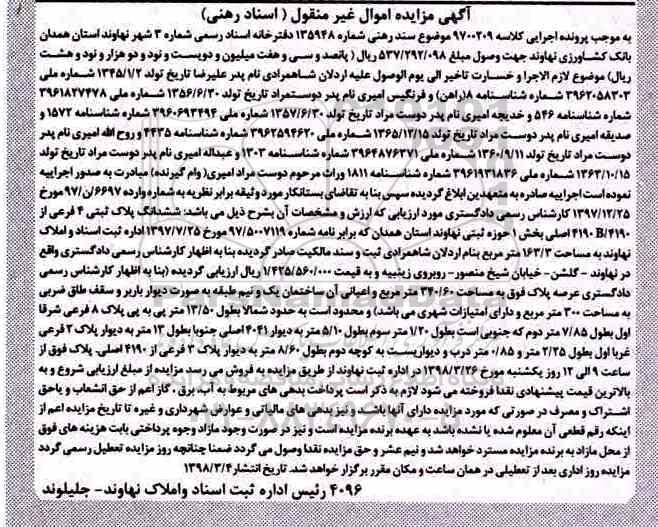 آگهی مزایده اموال غیر منقول ( اسناد رهنی)
به موجب پرونده اجرایی کلاسه ۹۷۰۰۲۰۹ موضوع سند رهنی شماره ۱۳۵۹۴۸ دفترخانه اسناد رسمی شماره ۳ شهر نهاوند استان همدان
بانک کشاورزی نهاوند جهت وصول مبلغ ۵۳۷/۲۹۲/۰۹۸ ریال ( پانصد و سی و هفت میلیون و دویست و نود و دو هزار و نود و هشت
ریال) موضوع لازم الاجرا و خسارت تاخیر الی یوم الوصول علیه اردلان شاهمرادی نام پدر علیرضا تاریخ تولد ۱۳۴۵/۷/۲ شماره ملی
۳۹۶۲۰۵۸۳۰۳ شماره شناسنامه ۸(راهن) و فرنگیس امیری نام پدر دوستمراد تاریخ تولد ۱۳۵۶/۶/۳۰ شماره ملی ۳۹۶۱۸۲۷۴۷۸
شماره شناسنامه ۵۴۶ و خدیجه امیری نام پدر دوست مراد تاریخ تولد ۱۳۵۷/۶/۳۰ شماره ملی ۳۹۶۰۶۹۳۴۹۴ شماره شناسنامه ۱۵۷۲ و
صدیقه امیری نام پدر دوست مراد تاریخ تولد ۱۳۶۵/۱۲/۱۵ شماره ملی ۳۹۶۲۵۹۴۶۲۰ شماره شناسنامه ۴۴۳۵ و روح الله امیری نام پدر
دوست مراد تاریخ تولد ۱۳۶۰/۹/۱۱ شماره ملی ۳۹۶۴۸۷۶۳۷۱ شماره شناسنامه ۱۳۰۳ و عبداله امیری نام پدر دوست مراد تاریخ تولد
۱۳۶۳/۱۰/۱۵ شماره ملی ۳۹۶۱۹۳۱۸۳۶ شماره شناسنامه ۱۸۱۱ وراث مرحوم دوست مراد امیری( وام گیرنده) مبادرت به صدور اجراییه
نموده است اجراییه صادره به متعهدین ابلاغ گردیده سپس بنا به تقاضای بستانکار مورد وثیقه برابر نظریه به شماره وارده ۶۶۹۷/ن/۹۷ مورخ
۱۳۹۷/۱۲/۲۵ کارشناس رسمی دادگستری مورد ارزیابی که ارزش و مشخصات آن بشرح ذیل می باشد: ششدانگ پلاک ثبتی ۴ فرعی از
۴۱۹۰/B ۴۱۹۰ اصلی بخش ۱ حوزه ثبتی نهاوند استان همدان که برابر نامه شماره ۹۷/۵۰۰۷۱۱۹ مورخ ۱۳۹۷/۷/۲۵ اداره ثبت اسناد و املاک
نهاوند به مساحت ۱۶۳/۳ متر مربع بنام اردلان شاهمرادی ثبت و سند مالکیت صادر گردیده بنا به اظهار کارشناس رسمی دادگستری واقع
در نهاوند - گلشن- خیابان شیخ منصور- روبروی زینبیه و به قیمت ۱/۴۲۵/۵۶۰/۰۰۰ ریال ارزیابی گردیده (بنا به اظهار کارشناس رسمی
دادگستری عرصه پلاک فوق به مساحت ۳۴۰/۶۰ متر مربع و اعیانی آن ساختمان یک و نیم طبقه به صورت دیوار باربر و سقف طاق ضربی
به مساحت ۳۰۰ متر مربع و دارای امتیازات شهری می باشد) و محدود است به حدود شمالا بطول ۱۳/۵۰ متر پی به پی پلاک ۸ فرعی شرقا
اول بطول ۷/۸۵ متر دوم که جنوبی است بطول ۱/۲۰ متر سوم بطول ۵/۱۰ متر به دیوار ۴۰۴۱ اصلی جنوبا بطول ۱۳ متر به دیوار پلاک ۲ فرعی
غربا اول بطول ۲/۲۵ متر و ۰/۸۵ متر درب و دیواریست به کوچه دوم بطول ۸/۶۰ متر به دیوار پلاک ۳ فرعی از ۴۱۹۰ اصلی. پلاک فوق از
ساعت ۹ الی ۱۲ روز یکشنبه مورخ ۱۳۹۸/۳/۲۶ در اداره ثبت نهاوند از طریق مزایده به فروش می رسد مزایده از مبلغ ارزیابی شروع و به
بالاترین قیمت پیشنهادی نقدا فروخته می شود لازم به ذکر است پرداخت بدهی های مربوط به آب، برق ، گاز اعم از حق انشعاب و یاحق
اشتراک و مصرف در صورتی که مورد مزایده دارای آنها باشد و نیز بدهی های مالیاتی و عوارض شهرداری و غیره تا تاریخ مزایده اعم از
اینکه رقم قطعی آن معلوم شده یا نشده باشد به عهده برنده مزایده است و نیز در صورت وجود مازاد وجوه پرداختی بابت هزینه های فوق
از محل مازاد به برنده مزایده مسترد خواهد شد و نیم عشر و حق مزایده نقدا وصول می گردد ضمنا چنانچه روز مزایده تعطیل رسمی گردد
مزایده روز اداری بعد از تعطیلی در همان ساعت و مکان مقرر برگزار خواهد شد. تاریخ انتشار۱۳۹۸/۳/۴
۴۰۹۶ رئیس اداره ثبت اسناد واملاک نهاوند- جلیلوند